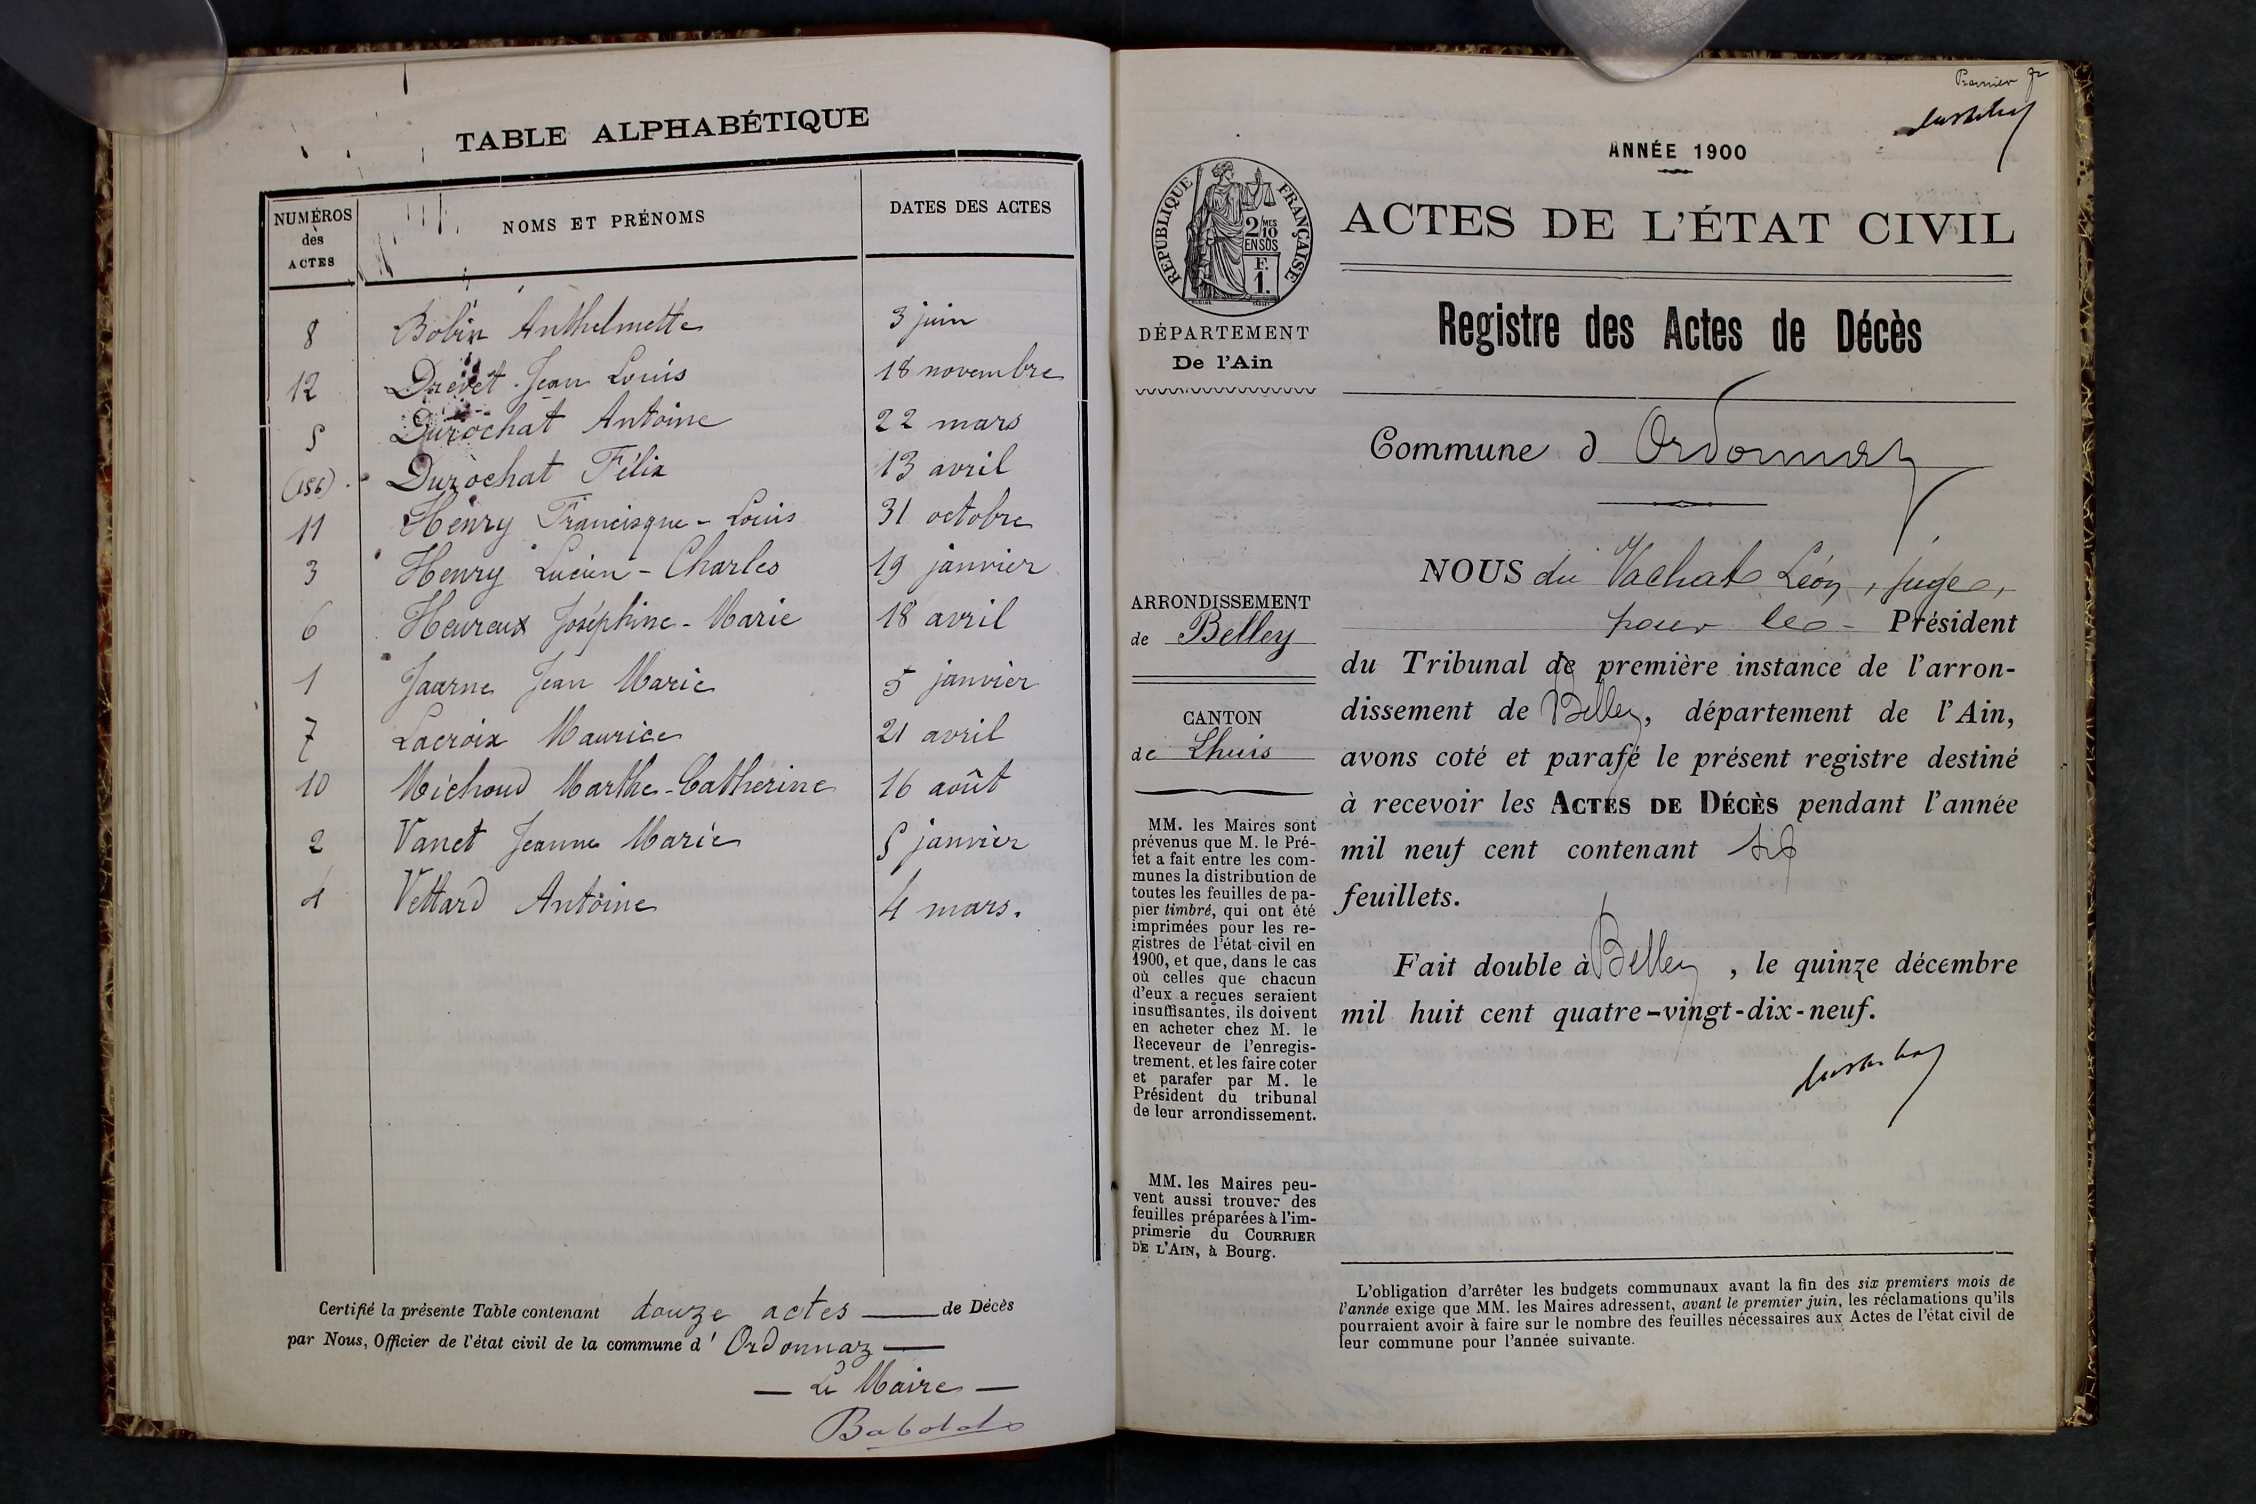 TABLE ALPHABÉTIQUE
NUMÉROS des ACTES | NOMS ET PRÉNOMS | DATES DES ACTES
8 Bobin Anthelmette 3 juin
12 Drevet Jean Louis 18 novembre
5 Durochat Antoine 22 mars
(5 bis) Durochat Félix 13 avril
11 Henry Francisque-Louis 31 octobre
3 Henry Lucien-Charles 19 janvier
6 Heureux Joséphine-Marie 18 avril
1 Jaarne Jean Marie 5 janvier
7 Lacroix Maurice 21 avril
10 Michoud Marthe-Catherine 16 août
2 Vanet Jeanne Marie 5 janvier
4 Vettard Antoine 4 mars.
Certifié la présente Table contenant douze actes de Décès
par Nous, Officier de l'état civil de la commune d' Ordonnaz
Le Maire
Premier
ANNÉE 1900
RÉPUBLIQUE FRANÇAISE
2/10 MES
EN SUS
F.
1.
DÉPARTEMENT
De l'Ain
ACTES DE L'ÉTAT CIVIL
Registre des Actes de Décès
Commune d Ordonnaz
ARRONDISSEMENT
de Belley
CANTON
de Lhuis
MM. les Maires sont
prévenus que M. le Pré-
fet a fait entre les com-
munes la distribution de
toutes les feuilles de pa-
pier timbré, qui ont été
imprimées pour les re-
gistres de l'état civil en
1900, et que, dans le cas
où celles que chacun
d'eux a reçues seraient
insuffisantes, ils doivent
en acheter chez M. le
Receveur de l'enregis-
trement, et les faire coter
et parafer par M. le
Président du tribunal
de leur arrondissement.
MM. les Maires peu-
vent aussi trouver des
feuilles préparées à l'im-
primerie du COURRIER
DE L'AIN, à Bourg.
NOUS du Vachat Léon, juge,
pour le Président
du Tribunal de première instance de l'arron-
dissement de Belley, département de l'Ain,
avons coté et parafé le présent registre destiné
à recevoir les ACTES DE DÉCÈS pendant l'année
mil neuf cent contenant six
feuillets.
Fait double à Belley, le quinze décembre
mil huit cent quatre-vingt-dix-neuf.
L'obligation d'arrêter les budgets communaux avant la fin des six premiers mois de
l'année exige que MM. les Maires adressent, avant le premier juin, les réclamations qu'ils
pourraient avoir à faire sur le nombre des feuilles nécessaires aux Actes de l'état civil de
leur commune pour l'année suivante.